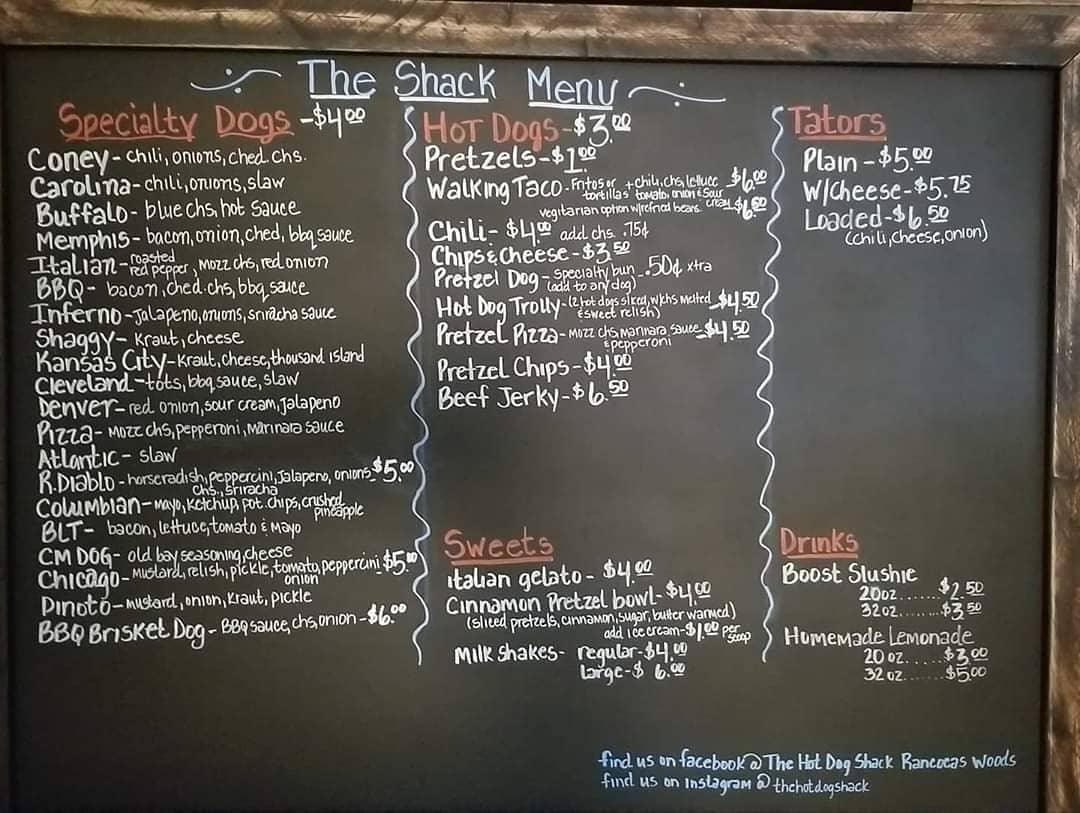 The Shack Menu
Specialty Dogs - $4.00
Coney - chili, onions, ched. chs.
Carolina - chili, onions, slaw
Buffalo - blue chs, hot sauce
Memphis - bacon, onion, ched, bbq sauce
Italian - roasted red pepper, mozz chs, red onion
BBQ - bacon, ched. chs, bbq sauce
Inferno - Jalapeno, onions, sriracha sauce
Shaggy - Kraut, cheese
Kansas City - Kraut, cheese, thousand island
Cleveland - tots, bbq sauce, slaw
Denver - red onion, sour cream, Jalapeno
Pizza - mozz chs, pepperoni, marinara sauce
Atlantic - slaw
R. Diablo - horseradish, peppercini, Jalapeno, onions $5.00
chs., sriracha
Columbian - mayo, Ketchup, pot. chips, crushed
pineapple
BLT - bacon, lettuce, tomato & mayo
CM DOG - old bay seasoning, cheese
Chicago - mustard, relish, pickle, tomato, peppercini $5.00
onion
Dinoto - mustard, onion, Kraut, pickle
BBQ Brisket Dog - BBQ sauce, chs, onion - $6.00
Hot Dogs - $3.00
Pretzels - $1.00
Walking Taco - Fritos or + chili, chs, lettuce $6.00
tortillas tomato, onion & sour cream
vegitarian option w/refried beans. $6.50
Chili - $4.00 add chs. .75¢
Chips & cheese - $3.50
Pretzel Dog - specialty bun .50¢ xtra
(add to any dog)
Hot Dog Trolly - (2 hot dogs sliced, w/chs melted $4.50
& sweet relish)
Pretzel Pizza - mozz chs, marinara sauce $4.50
& pepperoni
Pretzel Chips - $4.00
Beef Jerky - $6.50
Sweets
italian gelato - $4.00
Cinnamon Pretzel bowl - $4.00
(sliced pretzels, cinnamon, sugar, butter warmed)
add ice cream - $1.00 per scoop
Milk Shakes - regular - $4.00
large - $ 6.00
Tators
Plain - $5.00
W/Cheese - $5.75
Loaded - $6.50
(chili, cheese, onion)
Drinks
Boost Slushie
20oz.......$2.50
32oz........$3.50
Homemade Lemonade
20 oz.....$3.00
32 oz.......$5.00
find us on facebook @ The Hot Dog Shack Rancocas Woods
find us on Instagram @ thehotdogshack